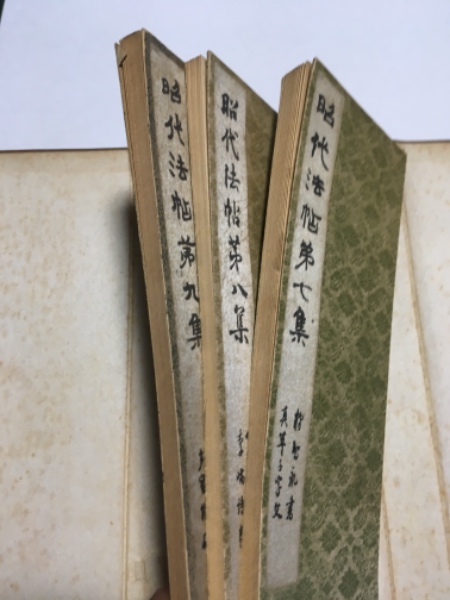 昭代法帖第七集
楷智永書
真草千字文
昭代法帖第八集
昭代法帖第九集